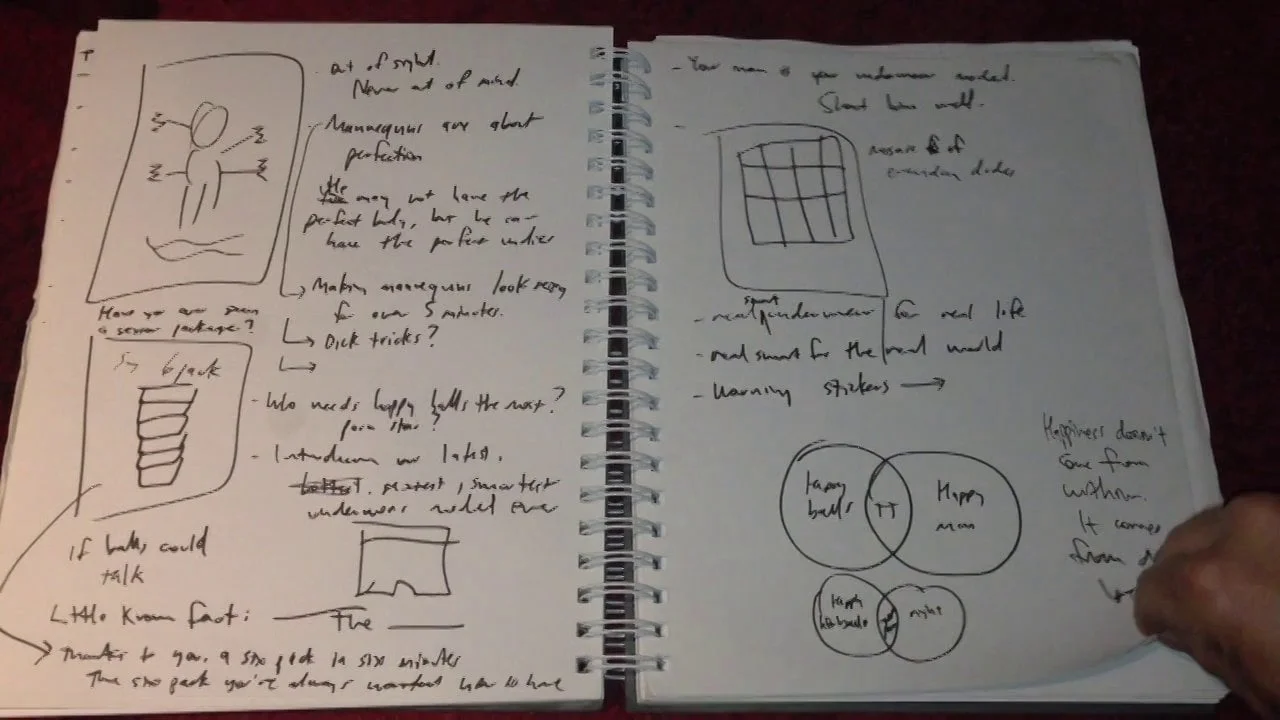 out of sight.
Never out of mind.
Mannequins are about
perfection
He may not have the
perfect body, but he can
have the perfect undies
Making mannequins look sexy
for over 5 minutes.
Dick tricks?
Have you ever seen
a sexier package?
6 pack
- Who needs happy balls the most?
porn star?
- Introducing our latest,
hottest, sexiest, smartest
underwear model ever
If balls could
talk
Little known fact: the
Thanks to you, a six pack in six minutes
The six pack you've always wanted him to have
- Your man is your underwear model.
Shoot him well.
of
everyday dudes
- real smart underwear for real life
- real smart for the real world
- Warning stickers
Happy
balls
TT
Happy
man
Happy
husbands
night
Happiness doesn't
come from
within.
It comes
from